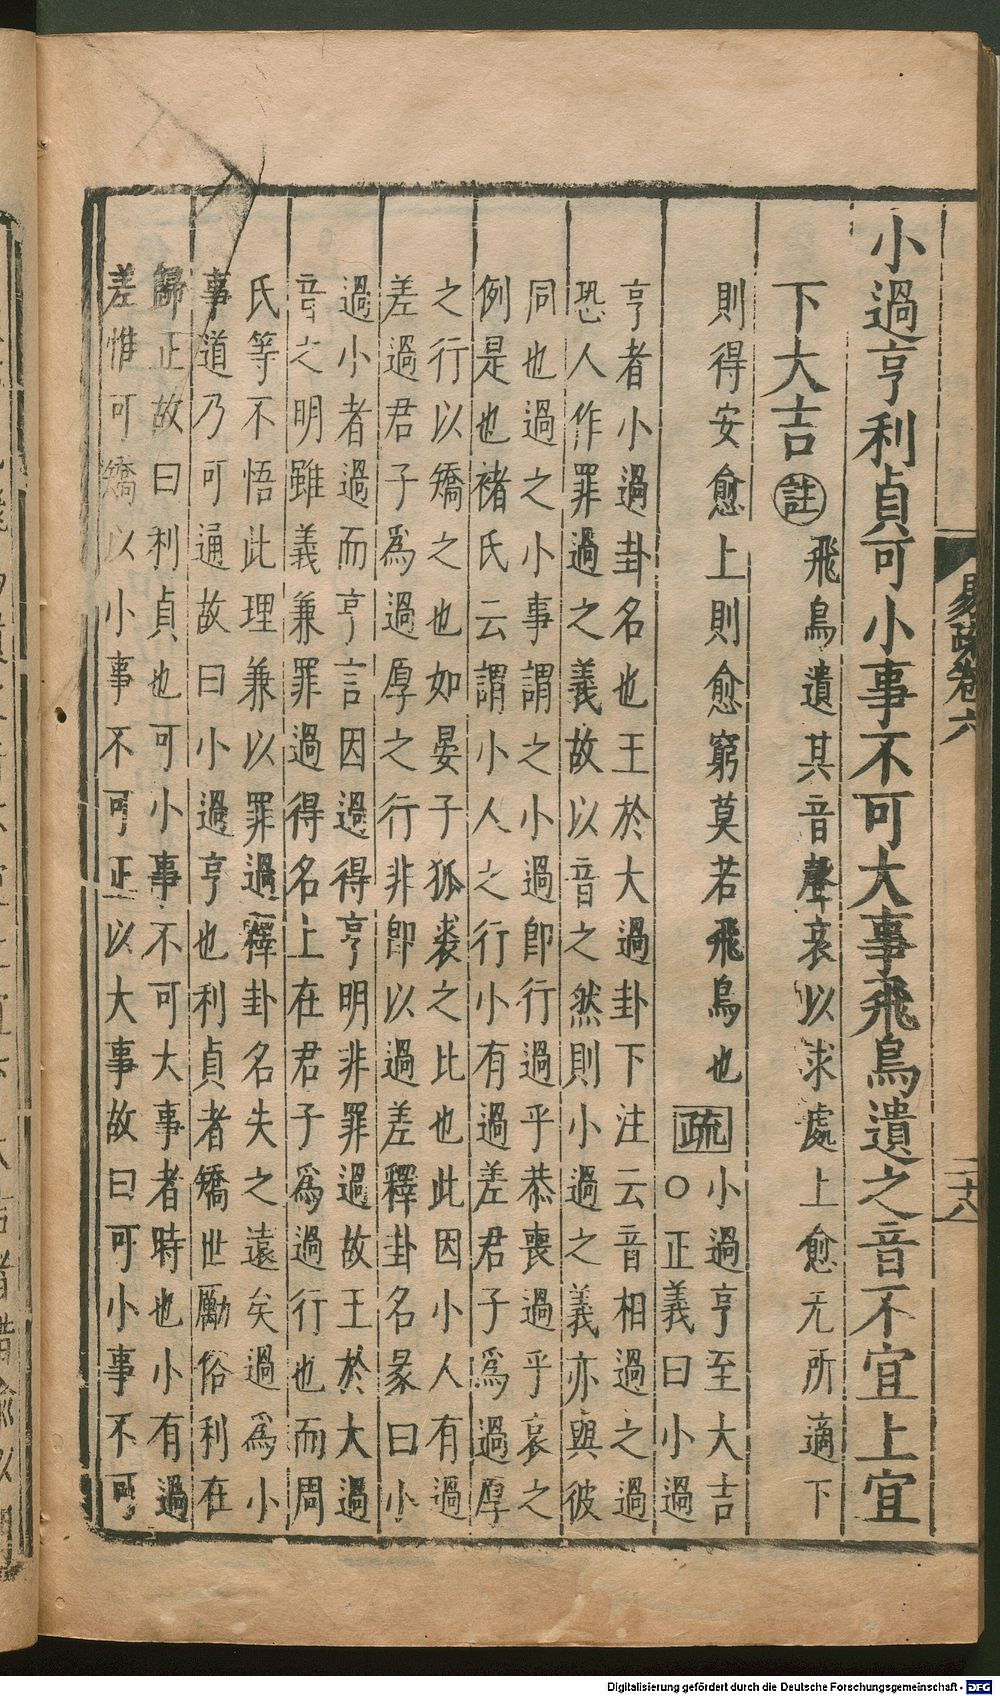 易疏卷六
二十八
小過亨利貞可小事不可大事飛鳥遺之音不宜上宜
下大吉
註
飛鳥遺其音聲哀以求處上愈无所適下
則得安愈上則愈窮莫若飛鳥也
疏
小過亨至大吉
○正義曰小過
亨者小過卦名也王於大過卦下注云音相過之過
恐人作罪過之義故以音之然則小過之義亦與彼
同也過之小事謂之小過卽行過乎恭喪過乎哀之
例是也褚氏云謂小人之行小有過差君子爲過厚
之行以矯之也如晏子狐裘之比也此因小人有過
差過君子爲過厚之行非卽以過差釋卦名彖曰小
過小者過而亨言因過得亨明非罪過故王於大過
音之明雖義兼罪過得名上在君子爲過行也而周
氏等不悟此理兼以罪過釋卦名失之遠矣過爲小
事道乃可通故曰小過亨也利貞者矯世勵俗利在
歸正故曰利貞也可小事不可大事者時也小有過
差惟可矯以小事不可正以大事故曰可小事不可
Digitalisierung gefördert durch die Deutsche Forschungsgemeinschaft - DFG